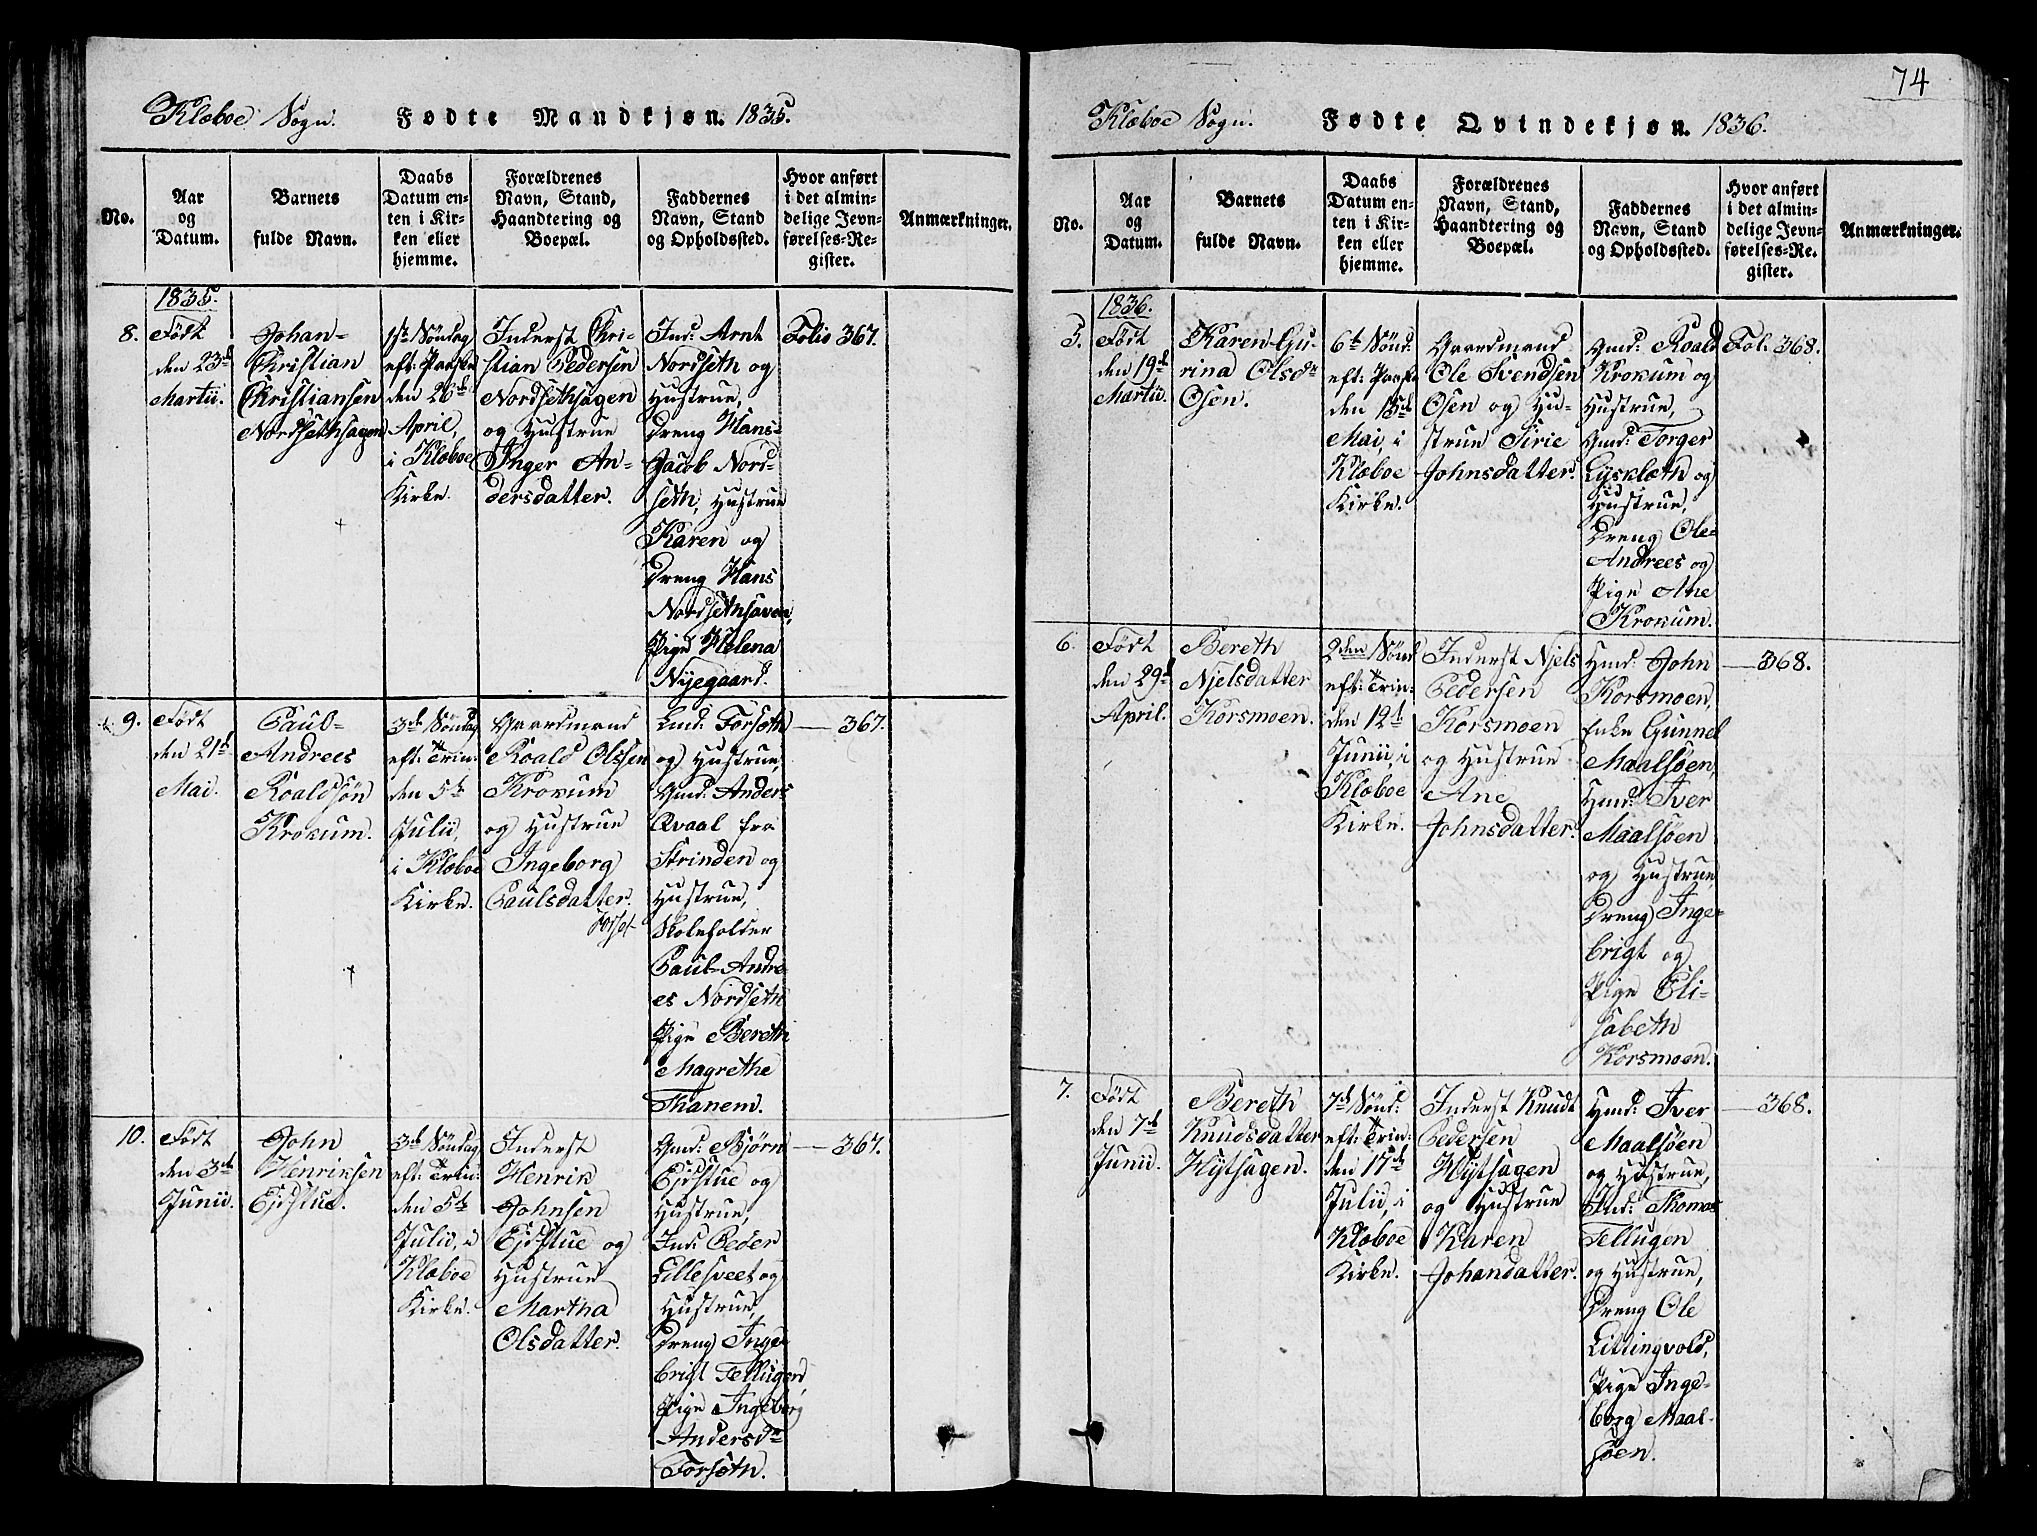 Klæboe Sogn. Fødte Mandkjøn. 1835.
No.
Aar
og
Datum.
Barnets
fulde Navn.
Daabs
Datum en-
ten i Kir-
ken eller
hjemme.
Forældrenes
Navn, Stand,
Haandtering og
Boepæl.
Faddernes
Navn, Stand
og Opholdssted.
Hvor anført
i det almin-
delige Jevn-
førelses-Re-
gister.
Anmærkninger.
1835.
8.
Født
den 23d
Martii.
Johan-
Christian
Christiansen
Nordsethhagen
1ste Søndag
eft: Paaske
den 26de
April,
i Klæboe
Kirke.
Inderst Chri-
stian Pedersen
Nordsethhagen
og Hustrue
Inger An-
dersdatter.
Ind: Arnt
Nordseth og
Hustrue,
Dreng Hans-
Jacob Nord-
seth, Hustrue
Karen og
Dreng Hans
Pige Helena
Nyegaard.
Folio 367.
9.
Født
den 21d
Mai.
Paul-
Andrees
Roaldsøn
Krokum.
3de Søndag
eft: Trin:
den 5te
Julii,
i Klæboe
Kirke.
Gaardmand
Roald Olssen
Krokum
og Hustrue
Ingeborg
Paulsdatter.
Forset
Forseth
og Hustrue,
Gmd: Anders
Qvaal fra
Strinden og
Hustrue,
Skoleholder
Paul-Andre-
es Nordseth
Pige Bereth
Magrethe
Thanem.
— 367.
10.
Født
den 3de
Junii.
John
Henriksen
Ejdstue.
3de Søndag
eft: Trin:
den 5te
Julii, i
Klæboe
Kirke.
Inderst
Henrik
Johnsen
Ejdstue og
Hustrue
Martha
Olsdatter.
Gmd: Bjørn
Ejdstue og
Hustrue,
Ind: Peder
Lillesveet og
Hustrue,
Dreng Inge-
brigt Tellugen,
Pige Ingeborg
Andersdr
Forseth.
— 367.
74
Klæboe Sogn. Fødte Qvindekjøn. 1836.
No.
Aar
og
Datum.
Barnets
fulde Navn.
Daabs
Datum en-
ten i Kir-
ken eller
hjemme.
Forældrenes
Navn, Stand,
Haandtering og
Boepæl.
Faddernes
Navn, Stand
og Opholdssted.
Hvor anført
i det almin-
delige Jevn-
førelses-Re-
gister.
Anmærkninger.
1836.
5.
Født
den 19d
Martii.
Karen-Gu-
rina Olsdr
Osen.
6te Sønd:
eft: Paaske
den 15de
Mai, i
Klæboe
Kirke.
Gaardmand
Ole Svendsen
Osen og Hu-
strue Sirie
Johnsdatter.
Gmd: Roald
Krokum og
Hustrue,
Gmd: Torger
Lyskleth og
Hustrue,
Dreng Ole-
Andrees og
Pige Ane
Krokum.
Fol. 368.
6.
Født
den 29d
April.
Bereth
Njelsdatter
Korsmoen.
2den Sønd
eft: Trin:
den 12te
Junii, i
Klæboe
Kirke.
Inderst Njels
Pedersen
Korsmoen
og Hustrue
Ane
Johnsdatter.
Hmd: John
Korsmoen,
Enke Gunnel
Maalsøen,
Hmd: Iver
Maalsøen
og Hustrue,
Dreng Inge-
brigt og
Pige Eli-
sabeth
Korsmoen.
— 368.
7.
Født
den 7de
Junii.
Bereth
Knudsdatter
Hythagen.
7de Sønd:
eft: Trin:
den 17de
Julii, i
Klæboe
Kirke.
Inderst Knudt
Pedersen
Hythagen
og Hustrue
Karen
Johandatter.
Hmd: Iver
Maalsøen
og Hustrue,
Ind: Thomas
Tellugen
og Hustrue,
Dreng Ole
Littingvold,
Pige Inge-
borg Maal-
søen.
— 368.